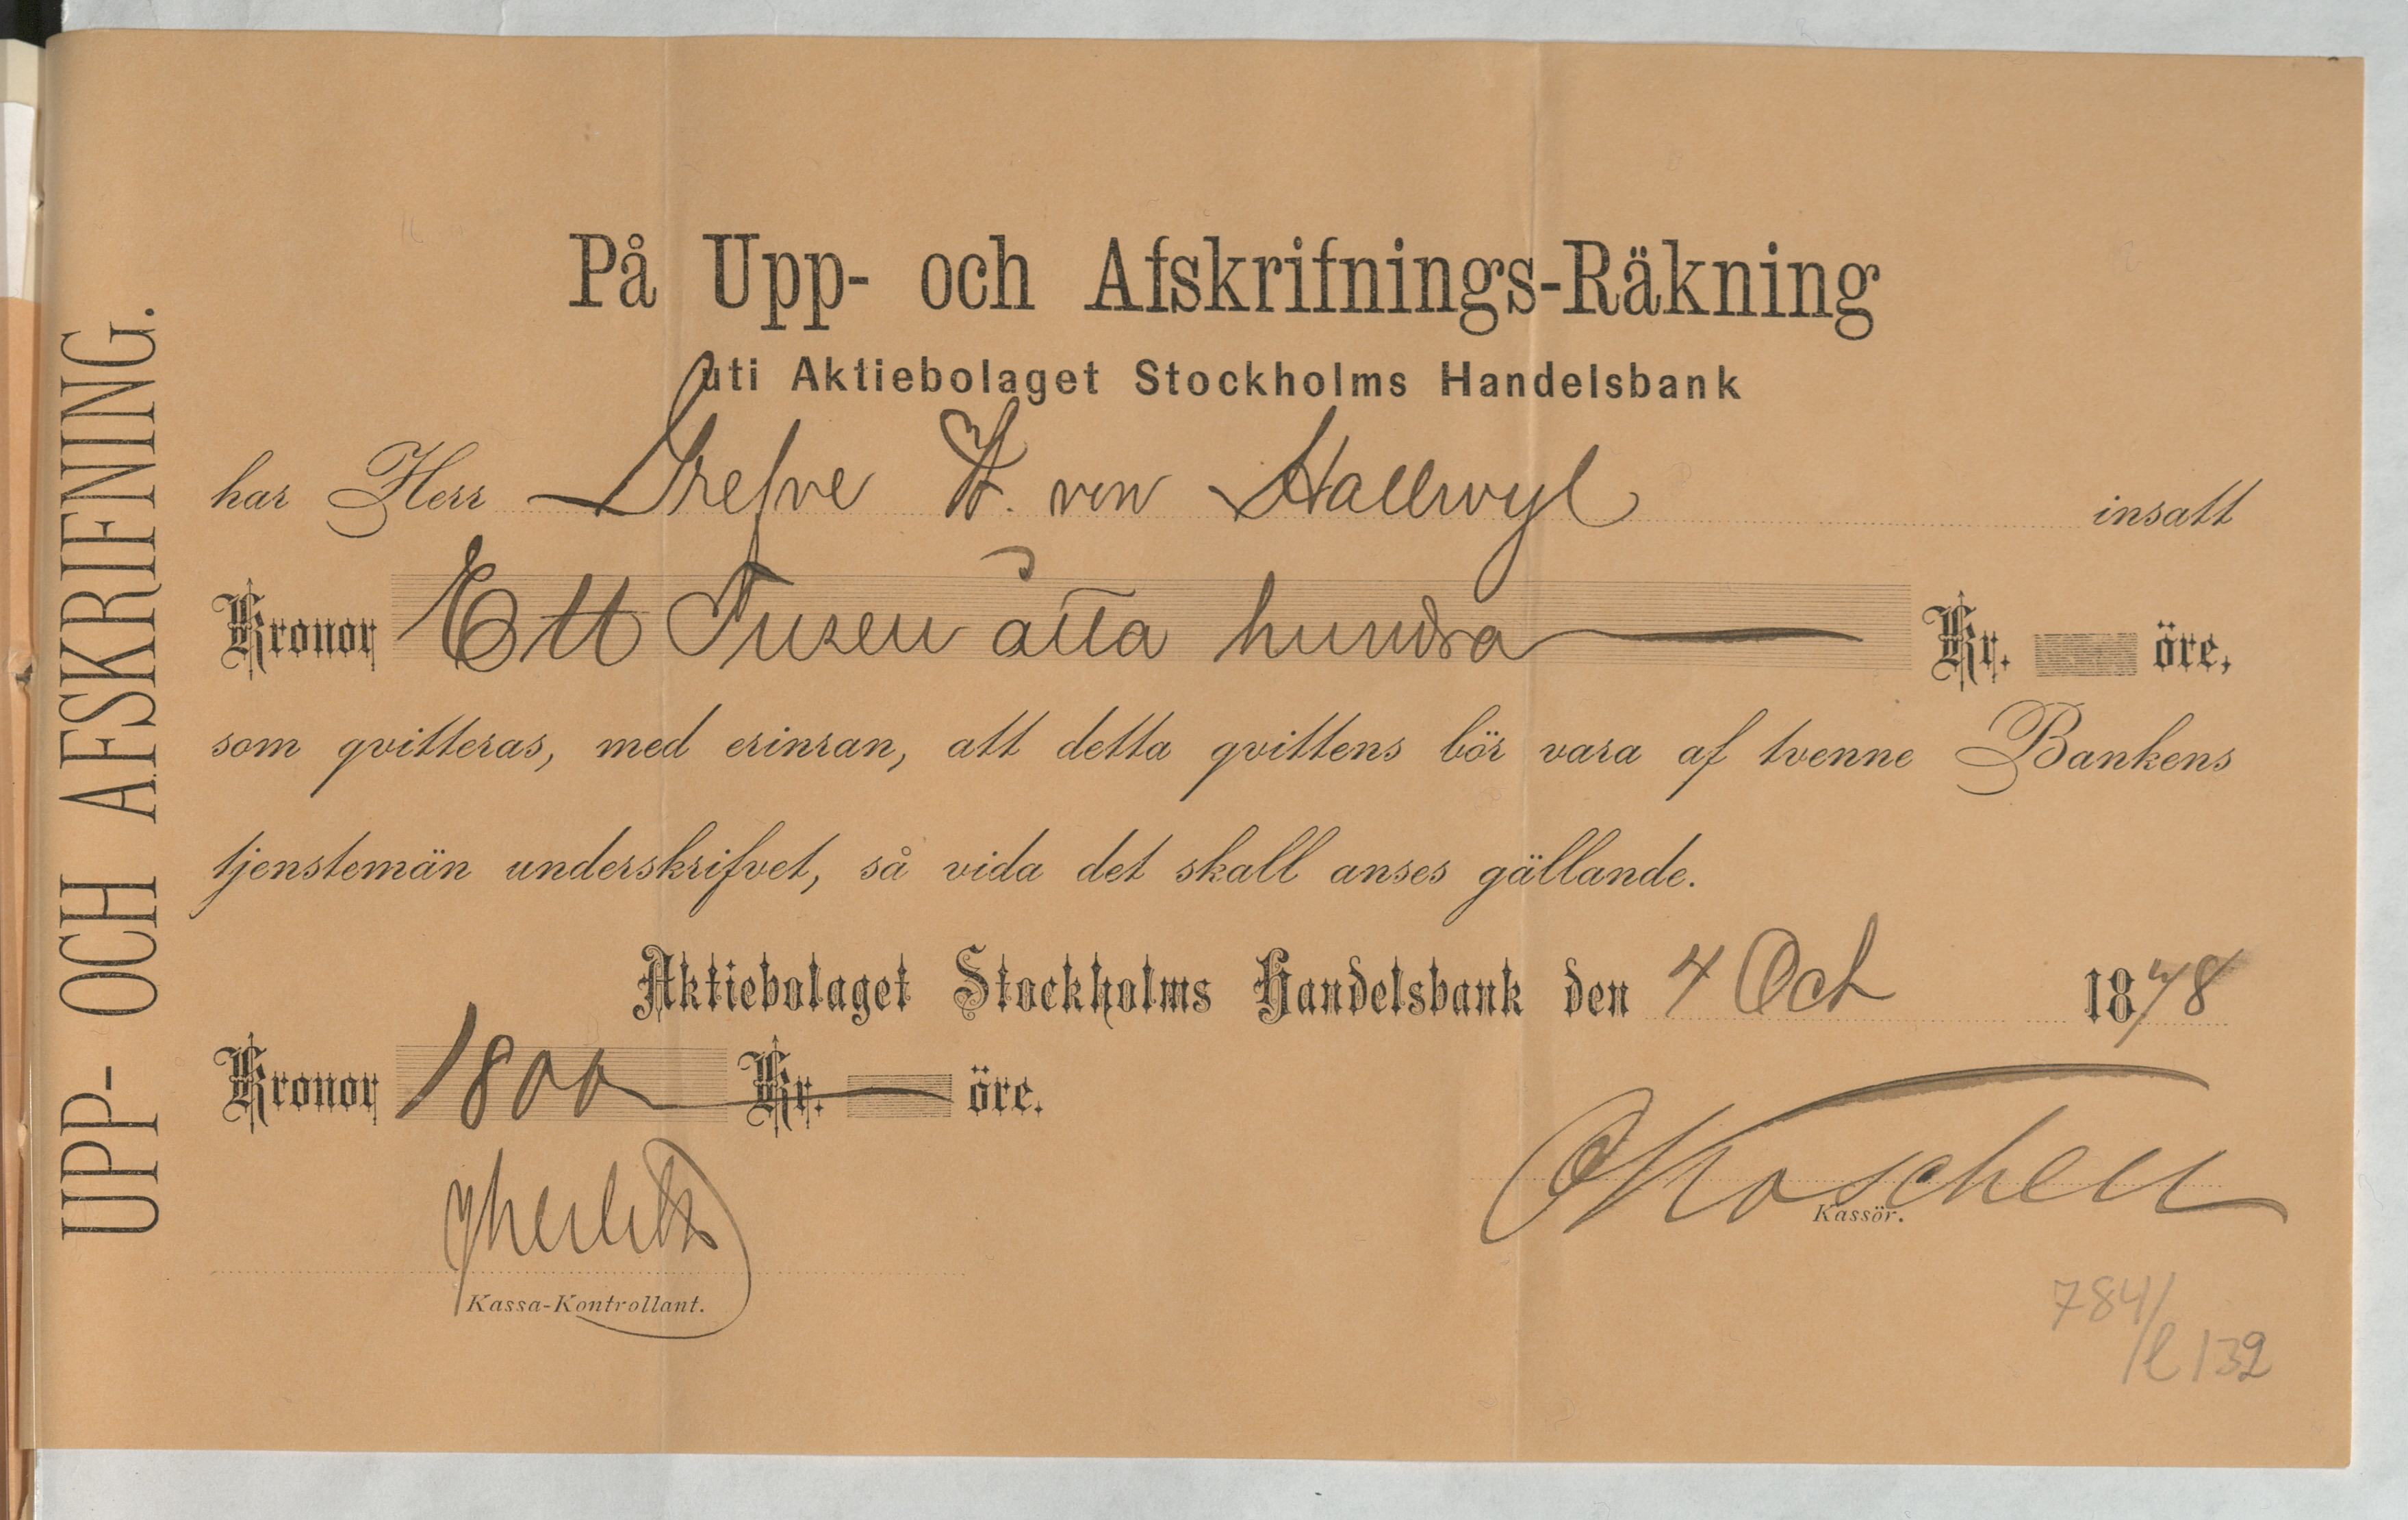 UPP- OCH AFSKRIFNING.
På Upp- och Afskrifnings-Räkning
uti Aktiebolaget Stockholms Handelsbank
har Herr Grefve W. von Hallwyl insatt
Kronor Ett Tusen åtta hundra Kr. öre,
som qvitteras, med erinran, att detta qvittens bör vara af tvenne Bankens
tjenstemän underskrifvet, så vida det skall anses gällande.
Aktiebolaget Stockholms Handelsbank den 4 Oct 1878
Kronor 1800 Kr. — öre.
Kassör.
Kassa-Kontrollant.
784/
/l 132